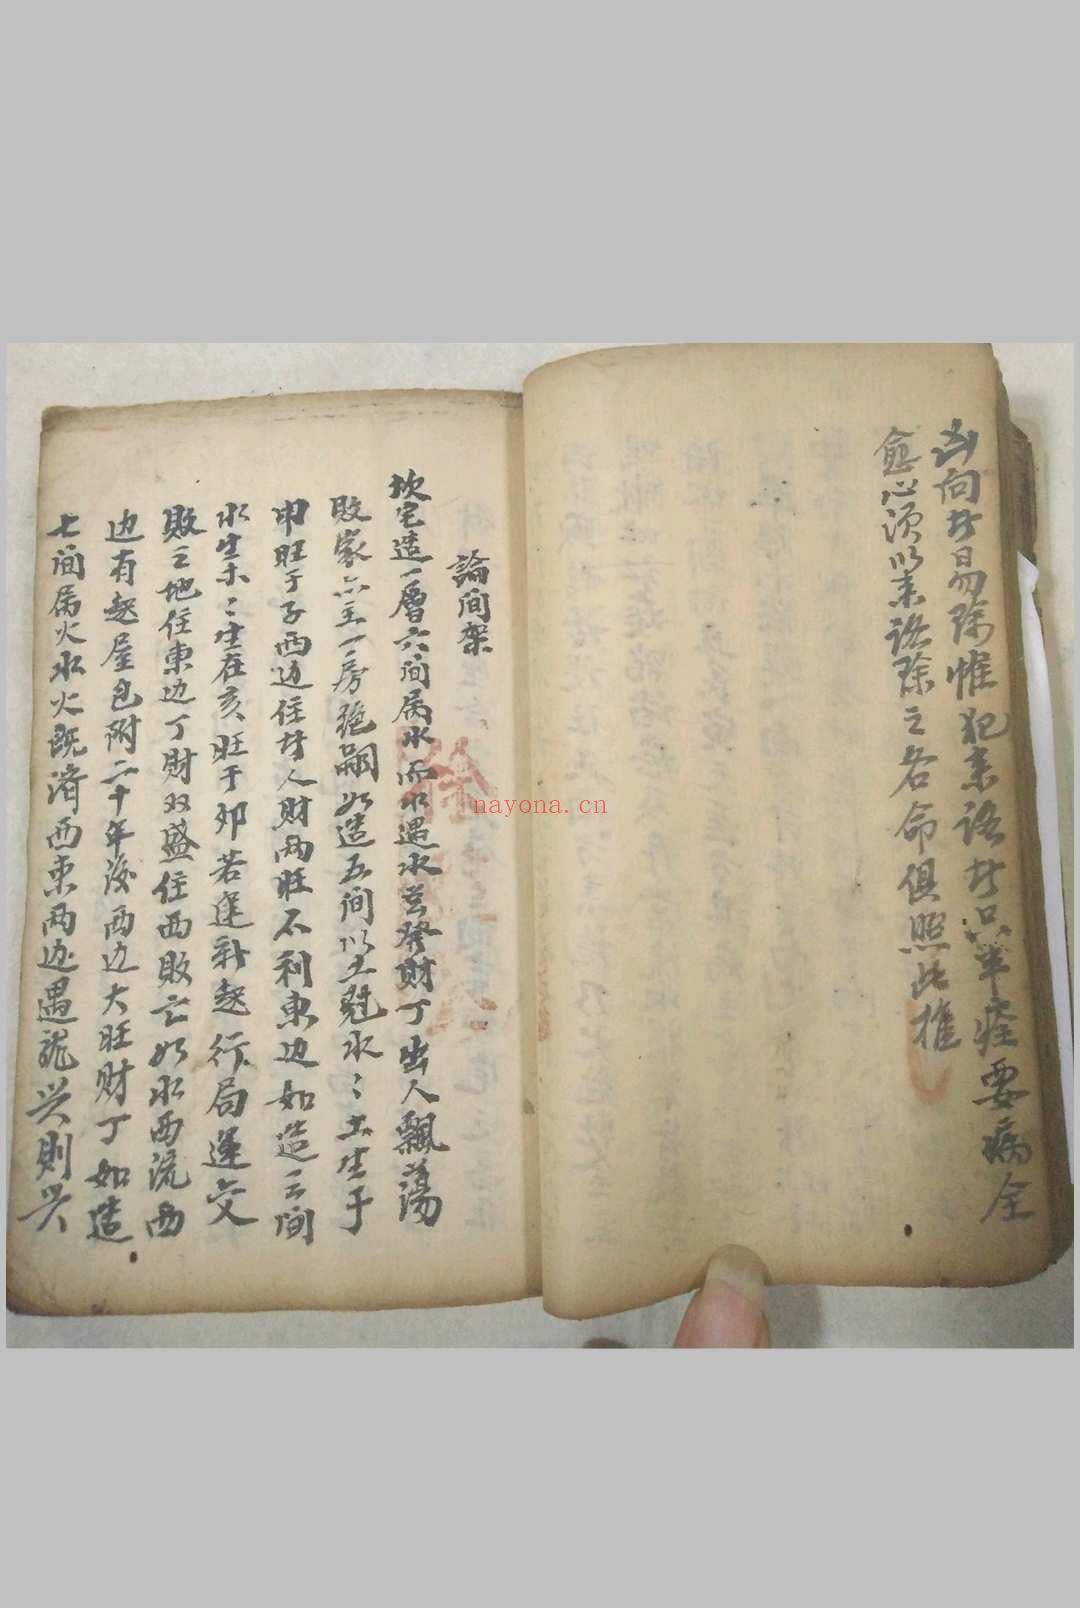 凶向者易除惟犯来路者只半痊要病全
愈必须以来路除之各命俱照此推
論间架
坎宅造一層六间属水而水遇水荳發财丁出人飄蕩
敗家六主一房绝嗣如造五间以土尅水〻土生于
申旺于子西边住者人财两旺不利東边如造三间
水生木〻生在亥旺于卯若逢新起行局運交
敗亡地住東边丁财双盛住西敗亡如水西流西
边有起屋包附二十年後西边大旺财丁如造
七间属火水火既済西東两边遇龍兴則兴
nayona.cn